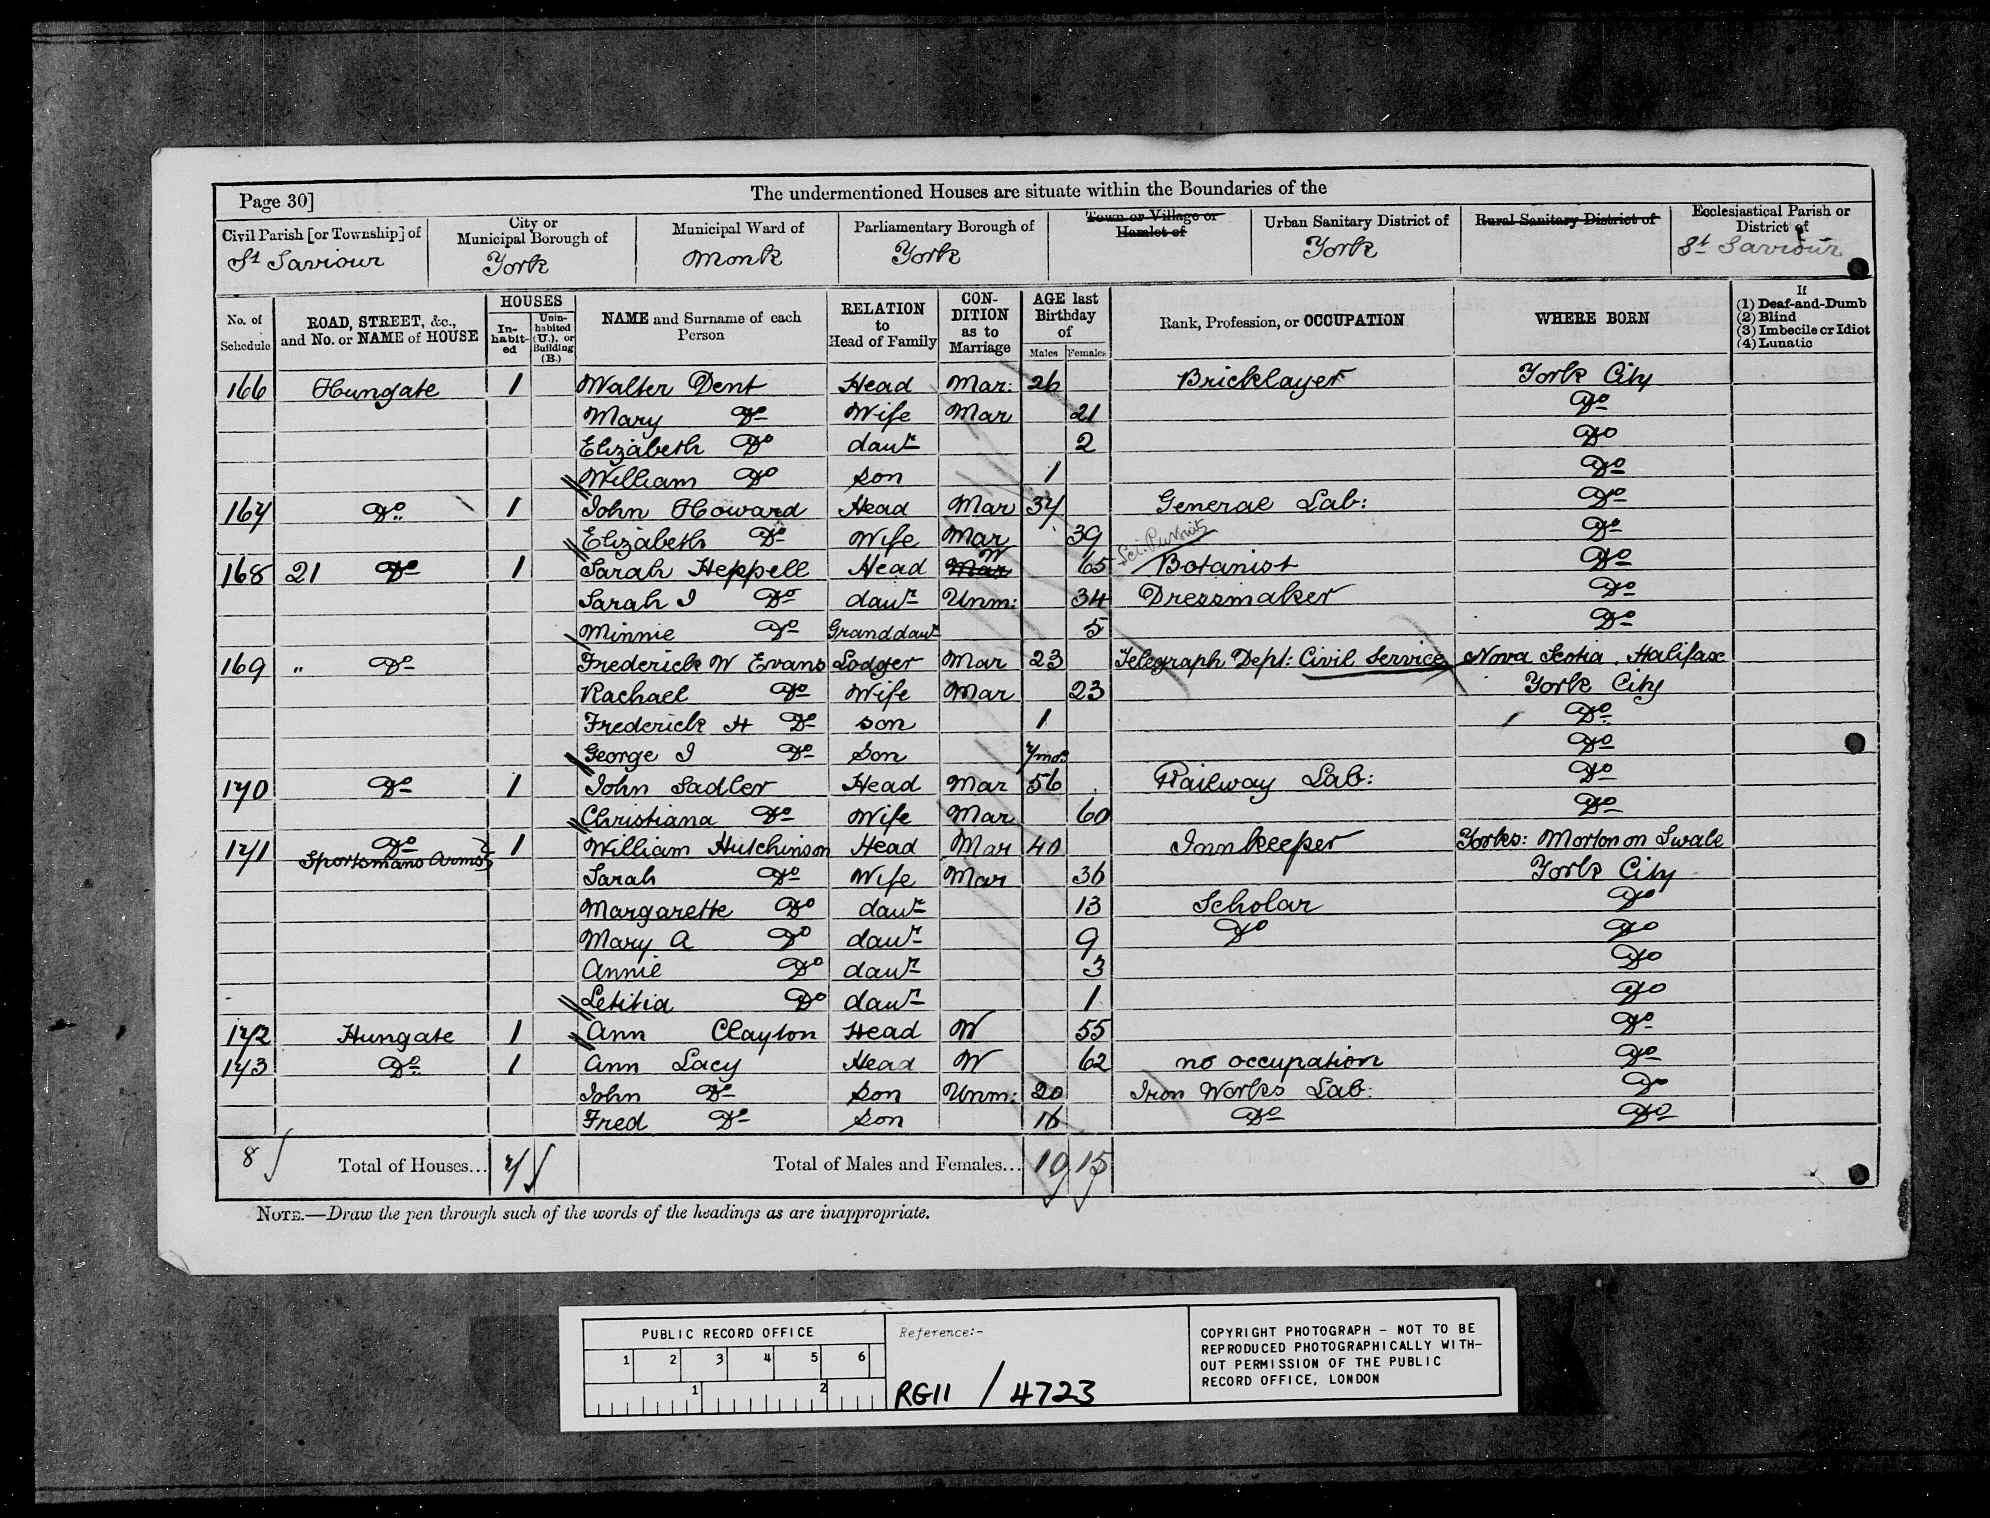 Page 30]
The undermentioned Houses are situate within the Boundaries of the
Civil Parish [or Township] of
St Saviour
City or
Municipal Borough of
York
Municipal Ward of
Monk
Parliamentary Borough of
York
Town or Village or
Hamlet of
Urban Sanitary District of
York
Rural Sanitary District of
Ecclesiastical Parish or
District of
St Saviour
No. of
Schedule
ROAD, STREET, &c.,
and No. or NAME of HOUSE
HOUSES
In-
habit-
ed
Unin-
habited
(U.), or
Building
(B.)
NAME and Surname of each
Person
RELATION
to
Head of Family
CON-
DITION
as to
Marriage
AGE last
Birthday
of
Males Females
Rank, Profession, or OCCUPATION
WHERE BORN
If
(1) Deaf-and-Dumb
(2) Blind
(3) Imbecile or Idiot
(4) Lunatic
166 Hungate 1 Walter Dent Head Mar: 26 Bricklayer York City
Mary Do Wife Mar 21 Do
Elizabeth Do daur 2 Do
William Do Son 1 Do
167 Do 1 John Howard Head Mar 37 General Lab: Do
Elizabeth Do Wife Mar 39 Do
Sci. Pursuits
168 21 Do 1 Sarah Heppell Head Mar W 65 Botanist Do
Sarah J Do daur Unm: 34 Dressmaker Do
Minnie Do Granddaur 5 Do
169 " Do Frederick W Evans Lodger Mar 23 Telegraph Dept: Civil Service Nova Scotia. Halifax
Rachael Do Wife Mar 23 York City
Frederick H Do son 1 Do
George J Do Son 7/mos Do
170 Do 1 John Sadler Head Mar 56 Railway Lab: Do
Christiana Do Wife Mar 60 Do
171 Do 1 William Hutchinson Head Mar 40 Innkeeper Yorks: Morton on Swale
Sportsmans Arms Sarah Do Wife Mar 36 York City
Margarette Do daur 13 Scholar Do
Mary A Do daur 9 Do Do
Annie Do daur 3 Do
Letitia Do daur 1 Do
172 Hungate 1 Ann Clayton Head W 55 Do
173 Do 1 Ann Lacy Head W 62 no occupation Do
John Do Son Unm: 20 Iron Works Lab: Do
Fred Do Son 16 Do Do
8 Total of Houses... 7 Total of Males and Females... 10 15
NOTE.—Draw the pen through such of the words of the headings as are inappropriate.
PUBLIC RECORD OFFICE
1 2 3 4 5 6
1 2
Reference:-
RG11 / 4723
COPYRIGHT PHOTOGRAPH - NOT TO BE
REPRODUCED PHOTOGRAPHICALLY WITH-
OUT PERMISSION OF THE PUBLIC
RECORD OFFICE, LONDON